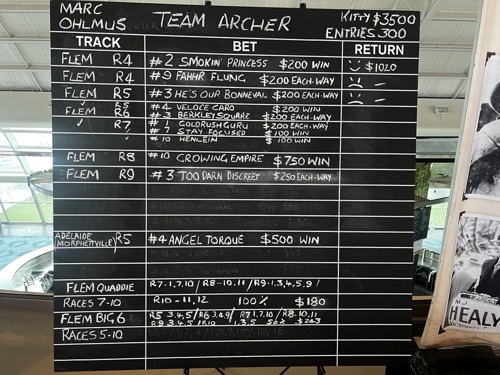 MARC OHLMUS
TEAM ARCHER
KITTY $3500
ENTRIES 300
TRACK BET RETURN
FLEM R4 #2 SMOKIN' PRINCESS $200 WIN $1020
FLEM R4 #9 FAHHR FLUNG $200 EACH-WAY –
FLEM R5 #3 HE'S OUR BONNEVAL $200 EACH-WAY –
✓ R5 #4 VELOCE CARO $200 WIN
FLEM R6 #3 BERKLEY SQUARE $200 EACH-WAY
✓ R7 #1 GOLDRUSH GURU $200 EACH-WAY
#7 STAY FOCUSED $100 WIN
✓ #10 HENLEIN $100 WIN
FLEM R8 #10 CROWING EMPIRE $750 WIN
FLEM R9 #3 TOO DARN DISCREET $250 EACH-WAY
ADELAIDE (MORPHETTVILLE) R5 #4 ANGEL TORQUE $500 WIN
FLEM QUADDIE R7-1,7,10/ R8-10,11/ R9-1,3,4,5,9/
RACES 7-10 R10-11,12 100% $180
FLEM BIG 6 R5 3,4,5/ R6 3,4,9/ R7 1,7,10/ R8-10,11
R9 3,4,5/ R10 1,3,5 50% $243
RACES 5-10
MJ
HEALY